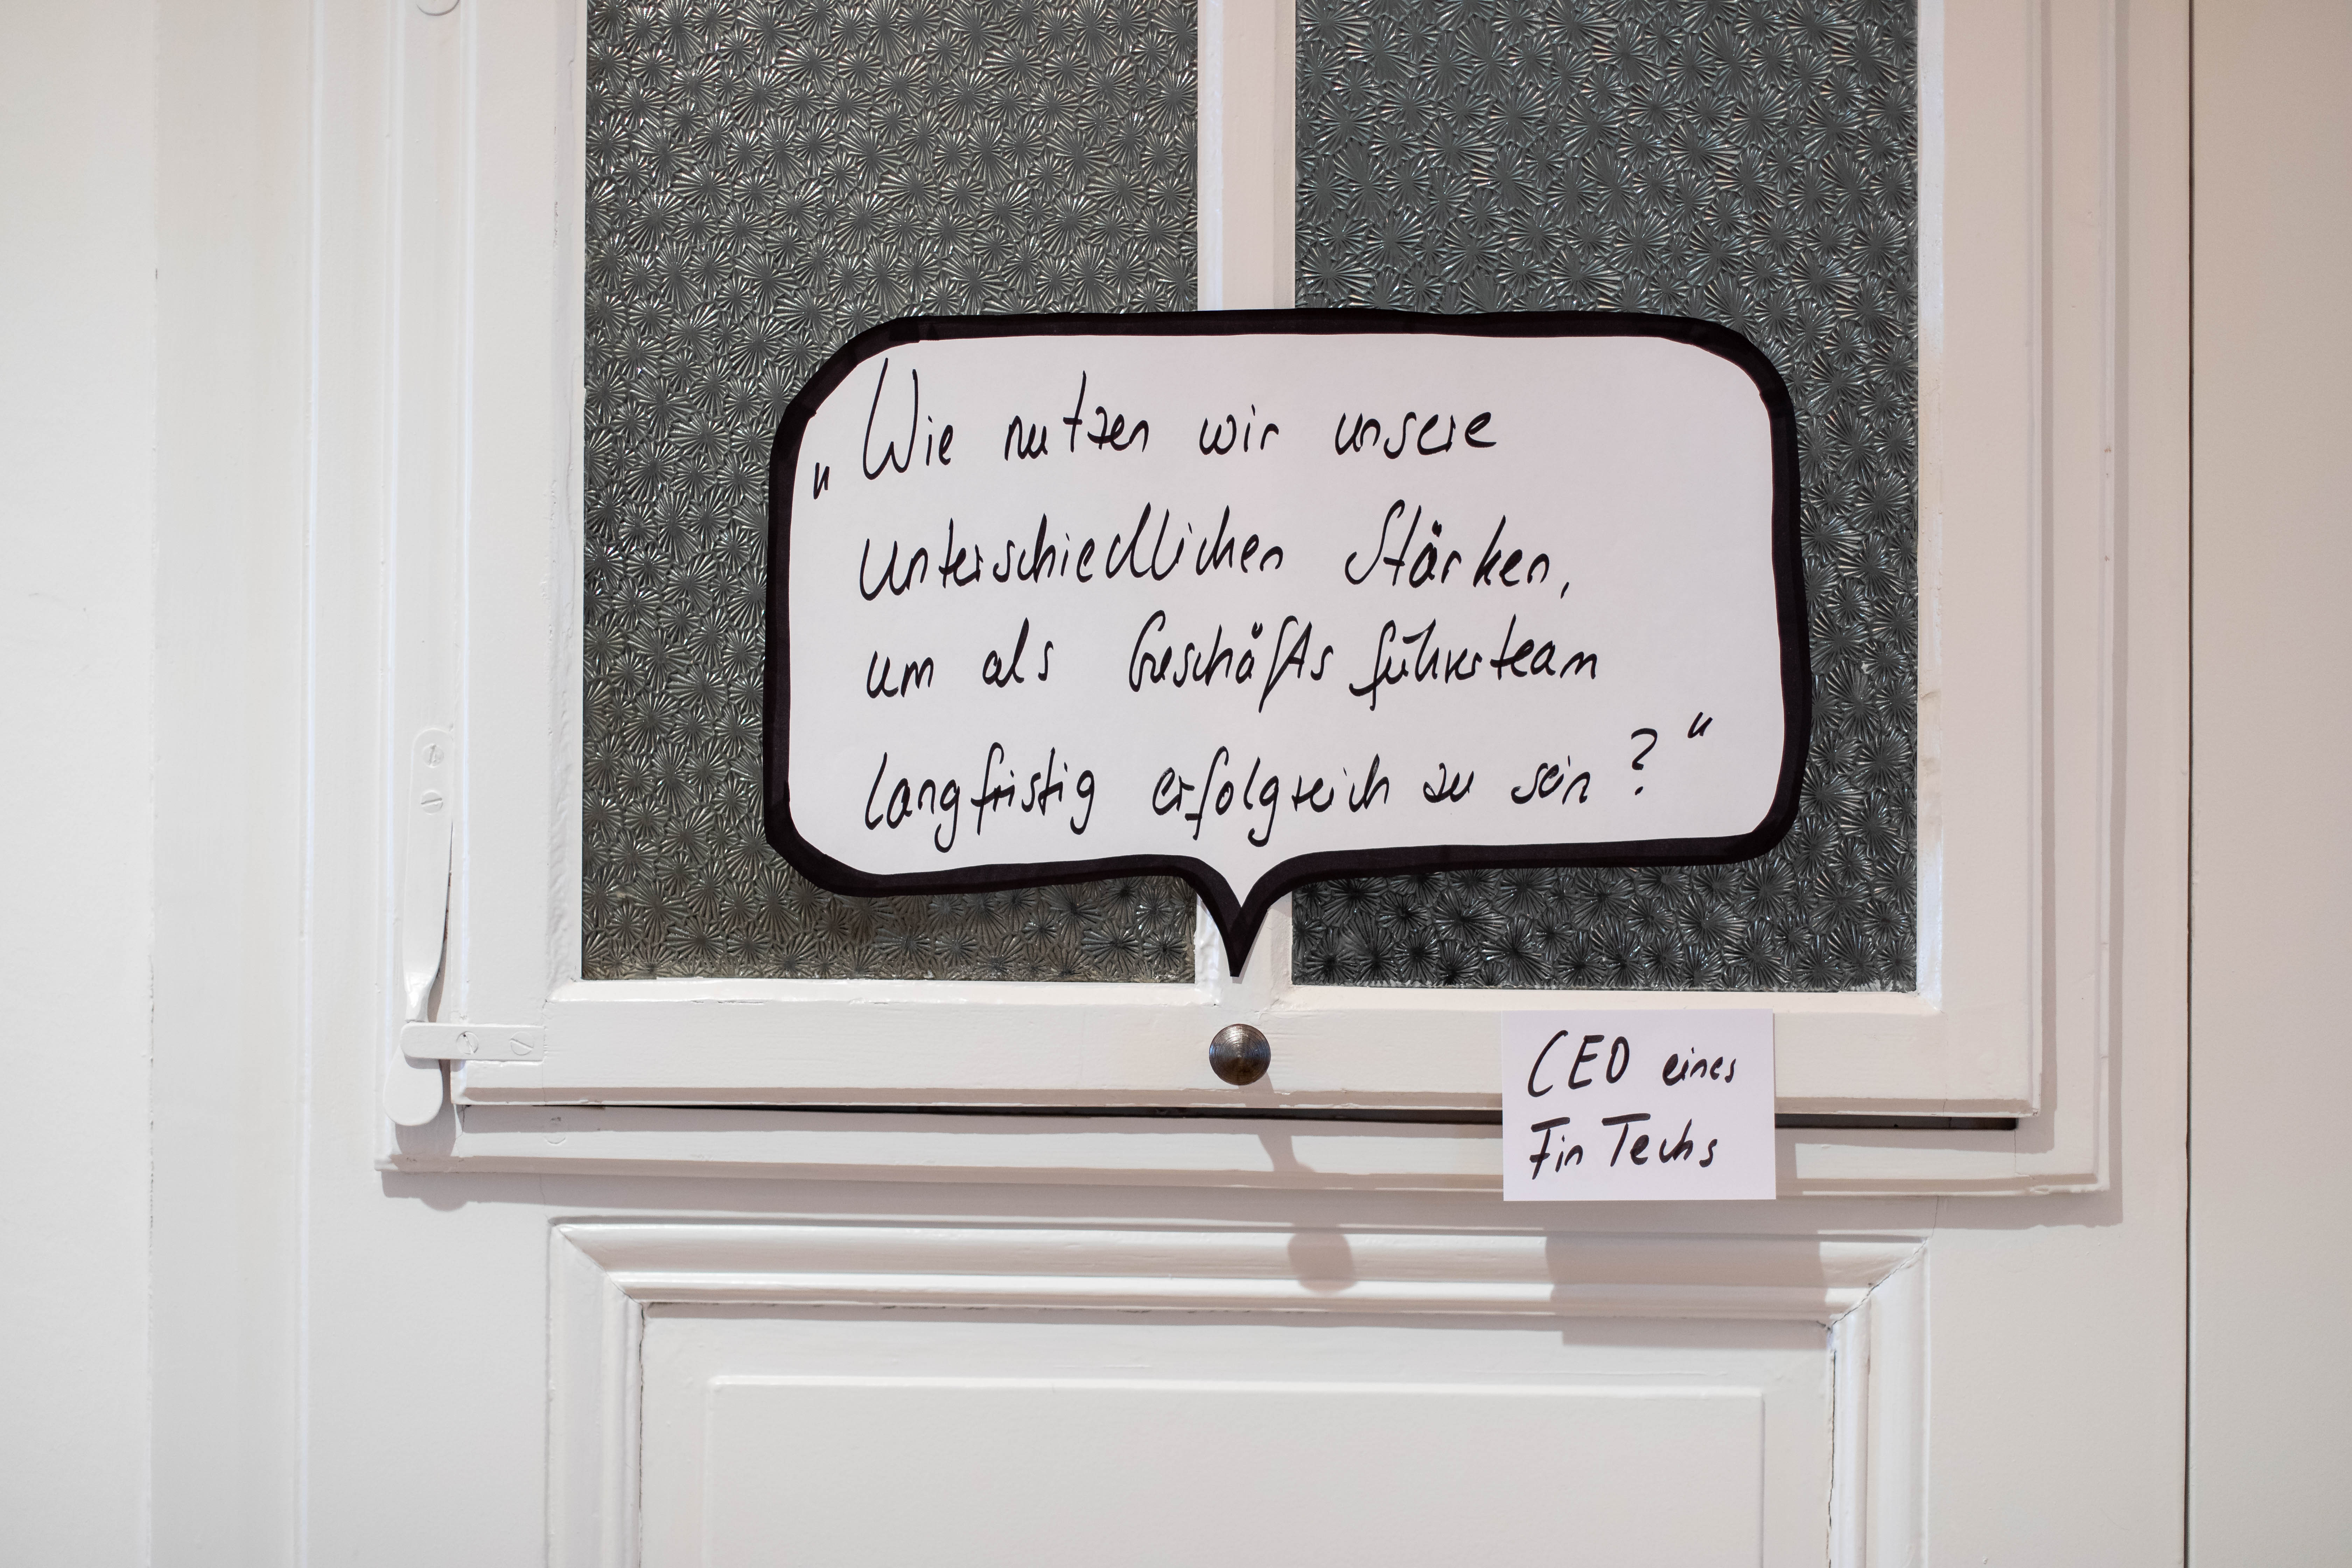 „Wie nutzen wir unsere
unterschiedlichen Stärken,
um als Geschäftsführerteam
langfristig erfolgreich zu sein?“
CEO eines
FinTechs